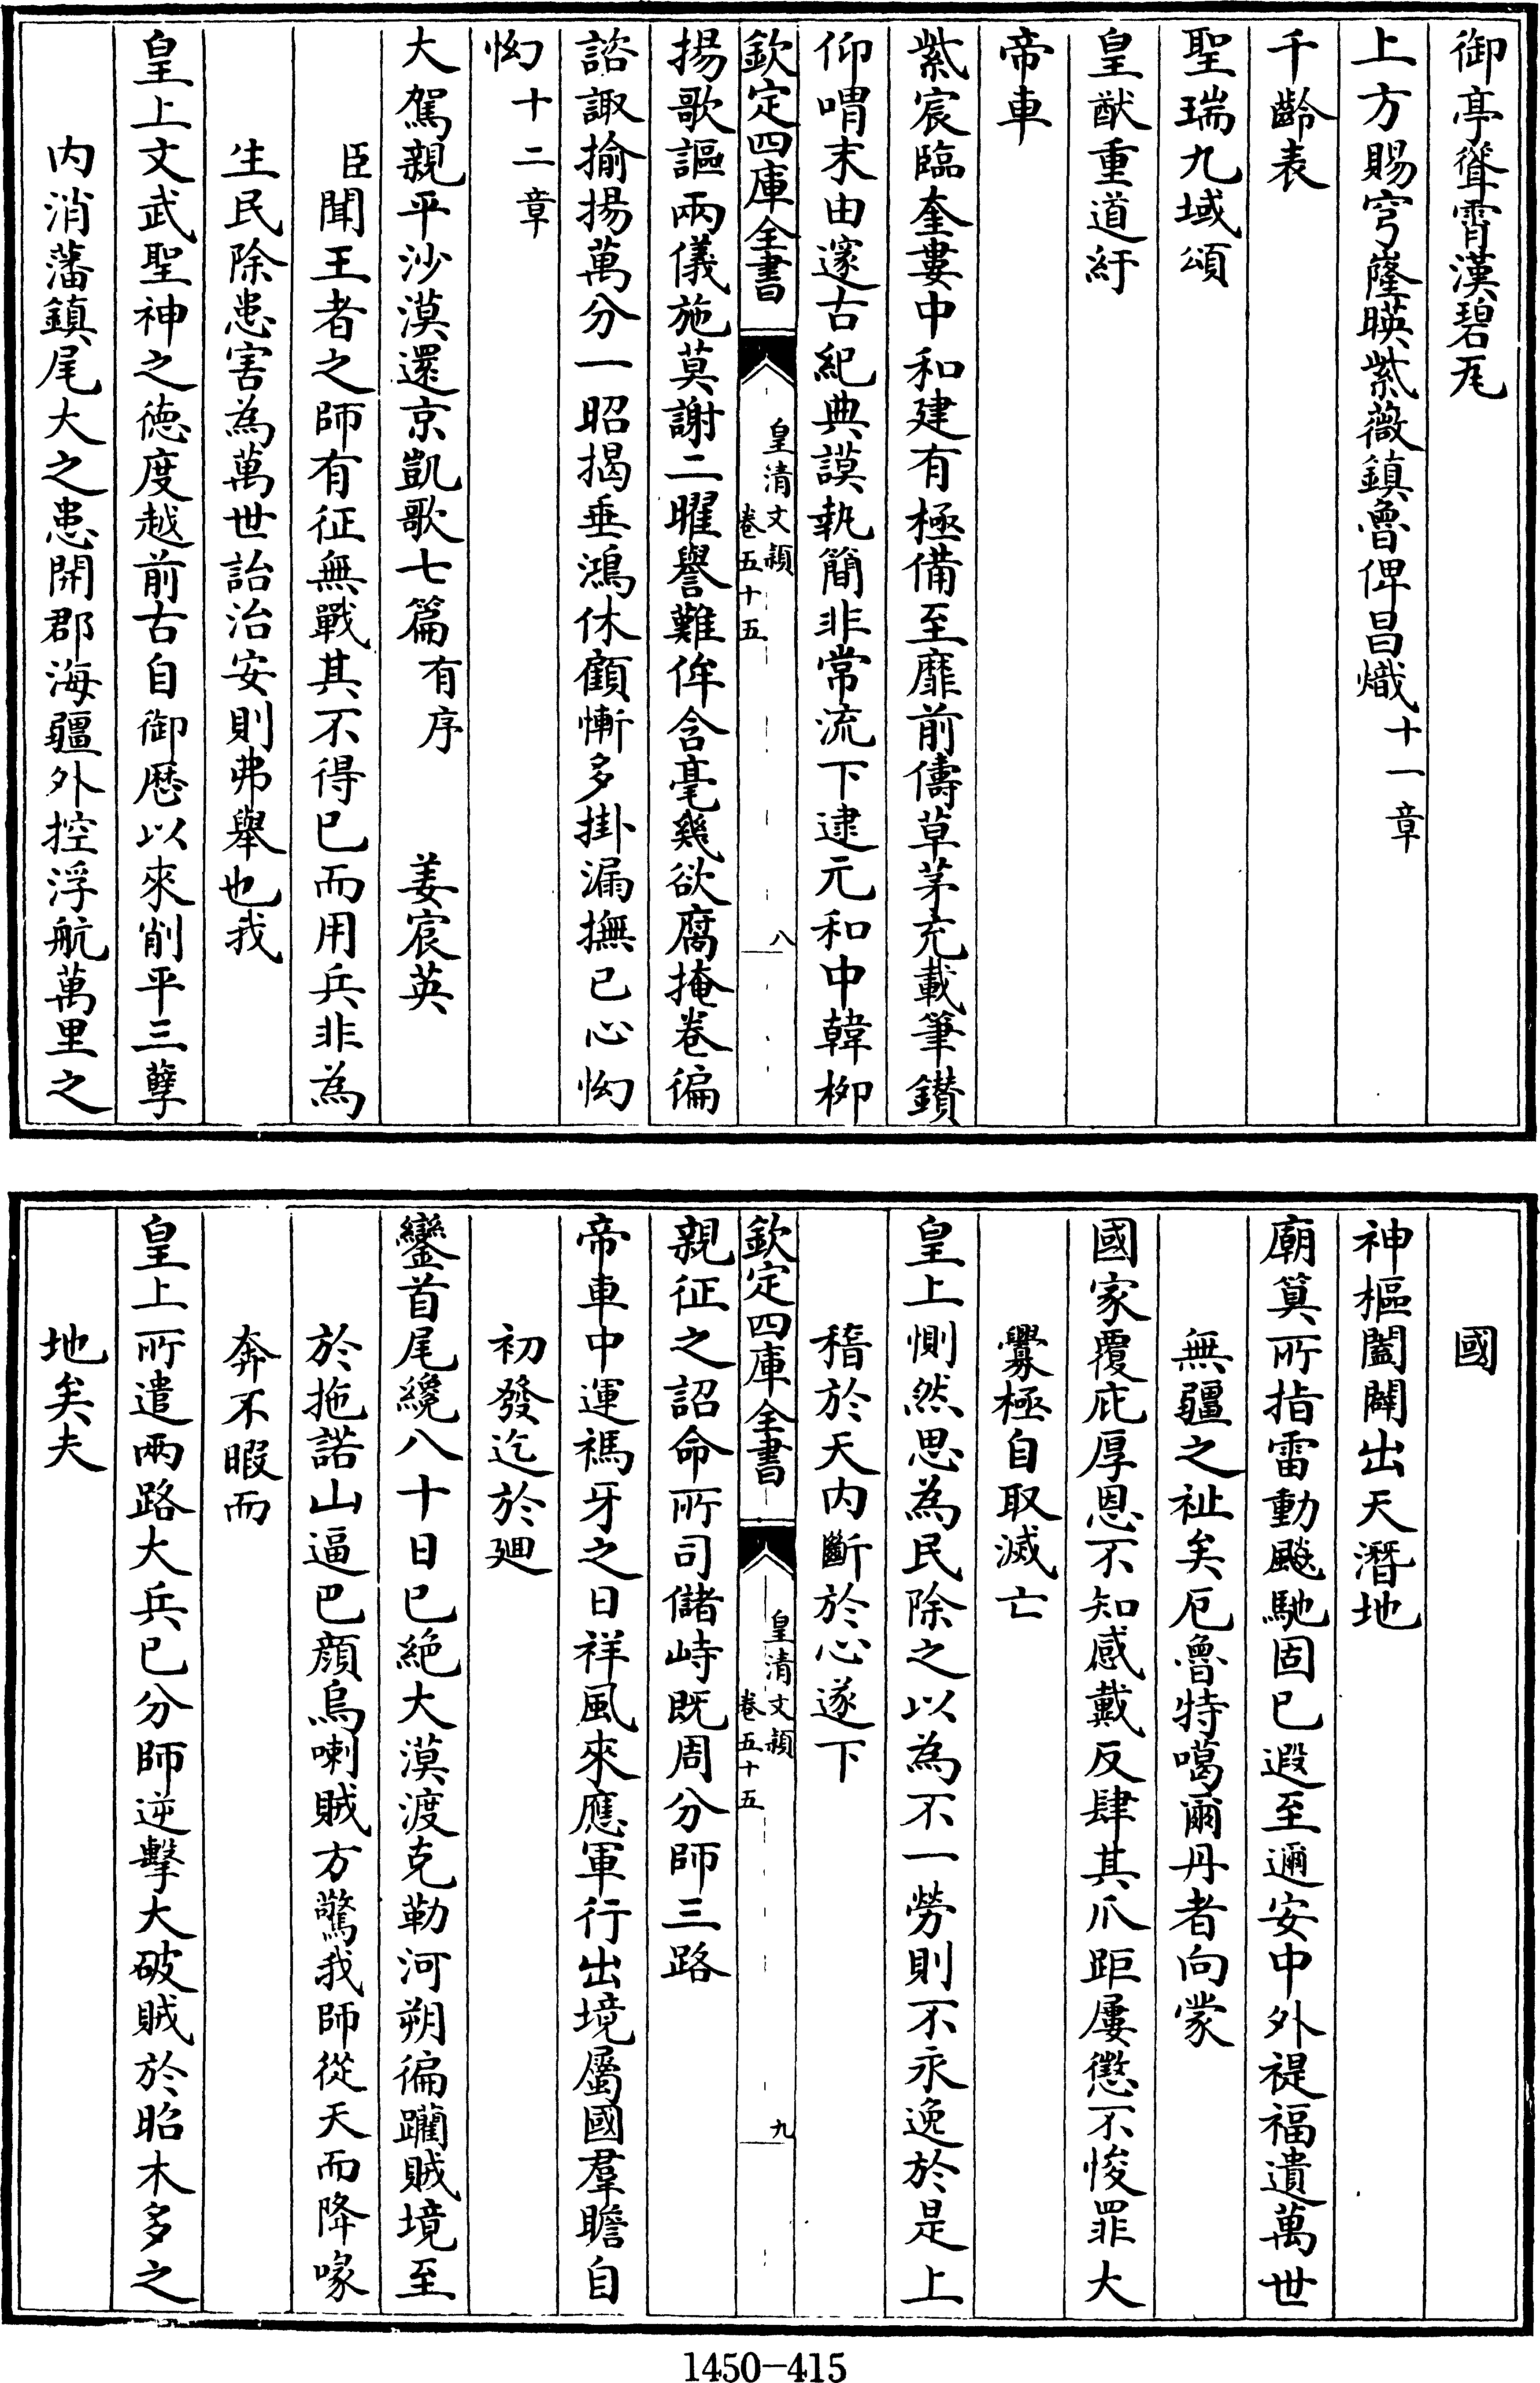 御亭聳霄漢碧瓦
上方賜穹窿暎紫薇鎮魯俾昌熾十一章
千齡表
聖瑞九域頌
皇猷重道紆
帝車
紫宸臨奎婁中和建有極備至靡前儔草茅充載筆鑚
仰喟末由邃古紀典謨執簡非常流下逮元和中韓栁
欽定四庫全書
皇清文穎
卷五十五
八
揚歌謳兩儀施莫謝二曜譽難侔含毫幾欲腐掩卷徧
諮諏揄揚萬分一昭揭垂鴻休顧慚多掛漏撫已心怮
怮十二章
大駕親平沙漠還京凱歌七篇有序 姜宸英
臣聞王者之師有征無戰其不得已而用兵非為
生民除患害為萬世詒治安則弗舉也我
皇上文武聖神之德度越前古自御厯以來削平三孽
内消藩鎮尾大之患開郡海疆外控浮航萬里之
國
神樞闔闢出天潛地
廟筭所指雷動飈馳固已遐至邇安中外禔福遺萬世
無疆之祉矣厄魯特噶爾丹者向蒙
國家覆庇厚恩不知感戴反肆其爪距屢懲不悛罪大
釁極自取滅亡
皇上惻然思為民除之以為不一勞則不永逸於是上
稽於天内斷於心遂下
欽定四庫全書
皇清文穎
卷五十五
九
親征之詔命所司儲峙既周分師三路
帝車中運禡牙之日祥風來應軍行出境屬國羣瞻自
初發迄於廻
鑾首尾纔八十日已絶大漠渡克勒河朔徧躪賊境至
於拖諾山逼巴顔烏喇賊方驚我師從天而降喙
奔不暇而
皇上所遣兩路大兵已分師逆擊大破賊於昭木多之
地矣夫
1450-415